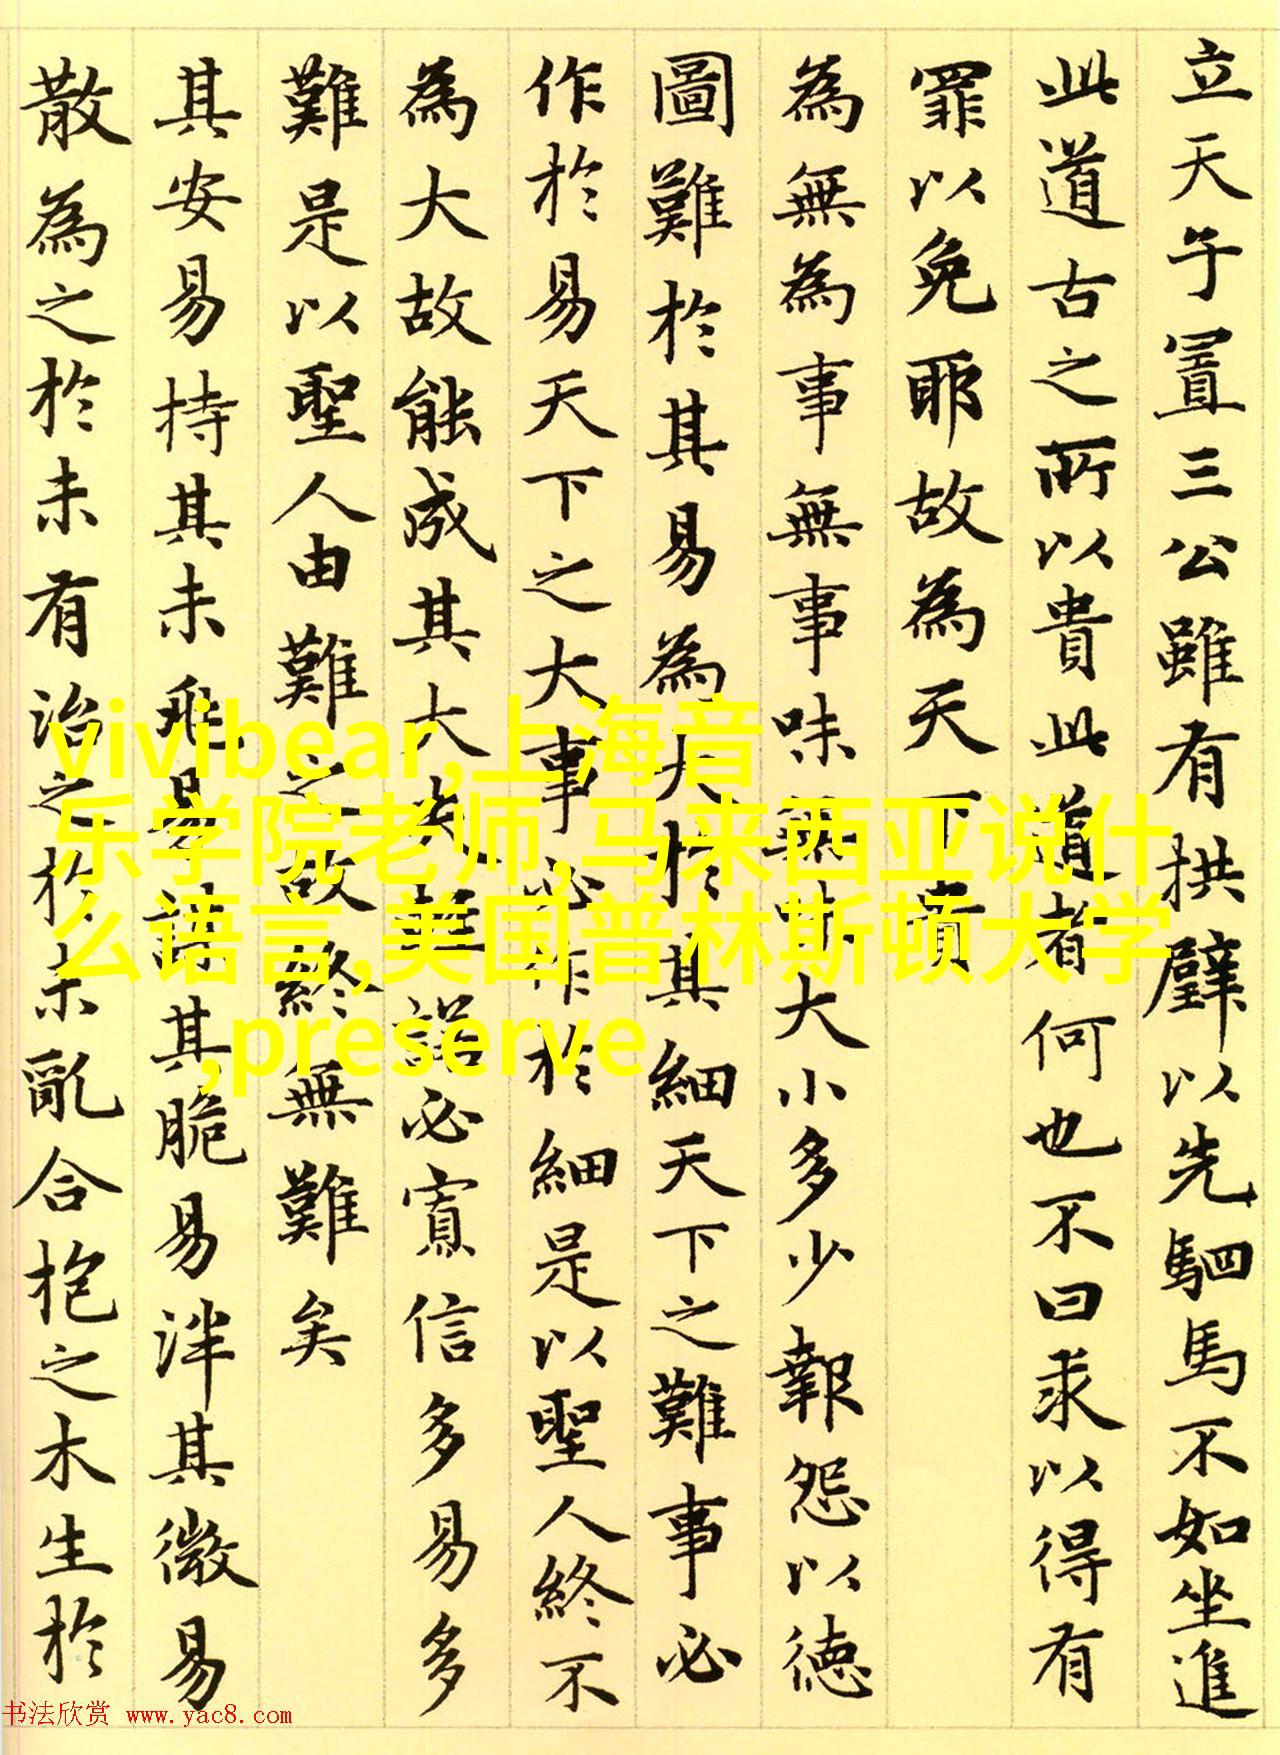 立天子置三公雖有拱璧以先駟馬不如坐進
此道古之所以貴此道者何也不曰求以得有
罪以免耶故為天下貴
為無為事無事味無味大小多少報怨以德
圖難於其易為大於其細天下之難事必
作於易天下之大事必作於細是以聖人終不
為大故能成其大夫輕諾必寡信多易多
難是以聖人由難之故終無難矣
其安易持其未兆易謀其脆易泮其微易
散為之於未有治之於未亂合抱之木生於
vivibear,上海音
乐学院老师,马来西亚说什
么语言,美国普林斯顿大学
,preserve
书法欣赏 www.yac8.com